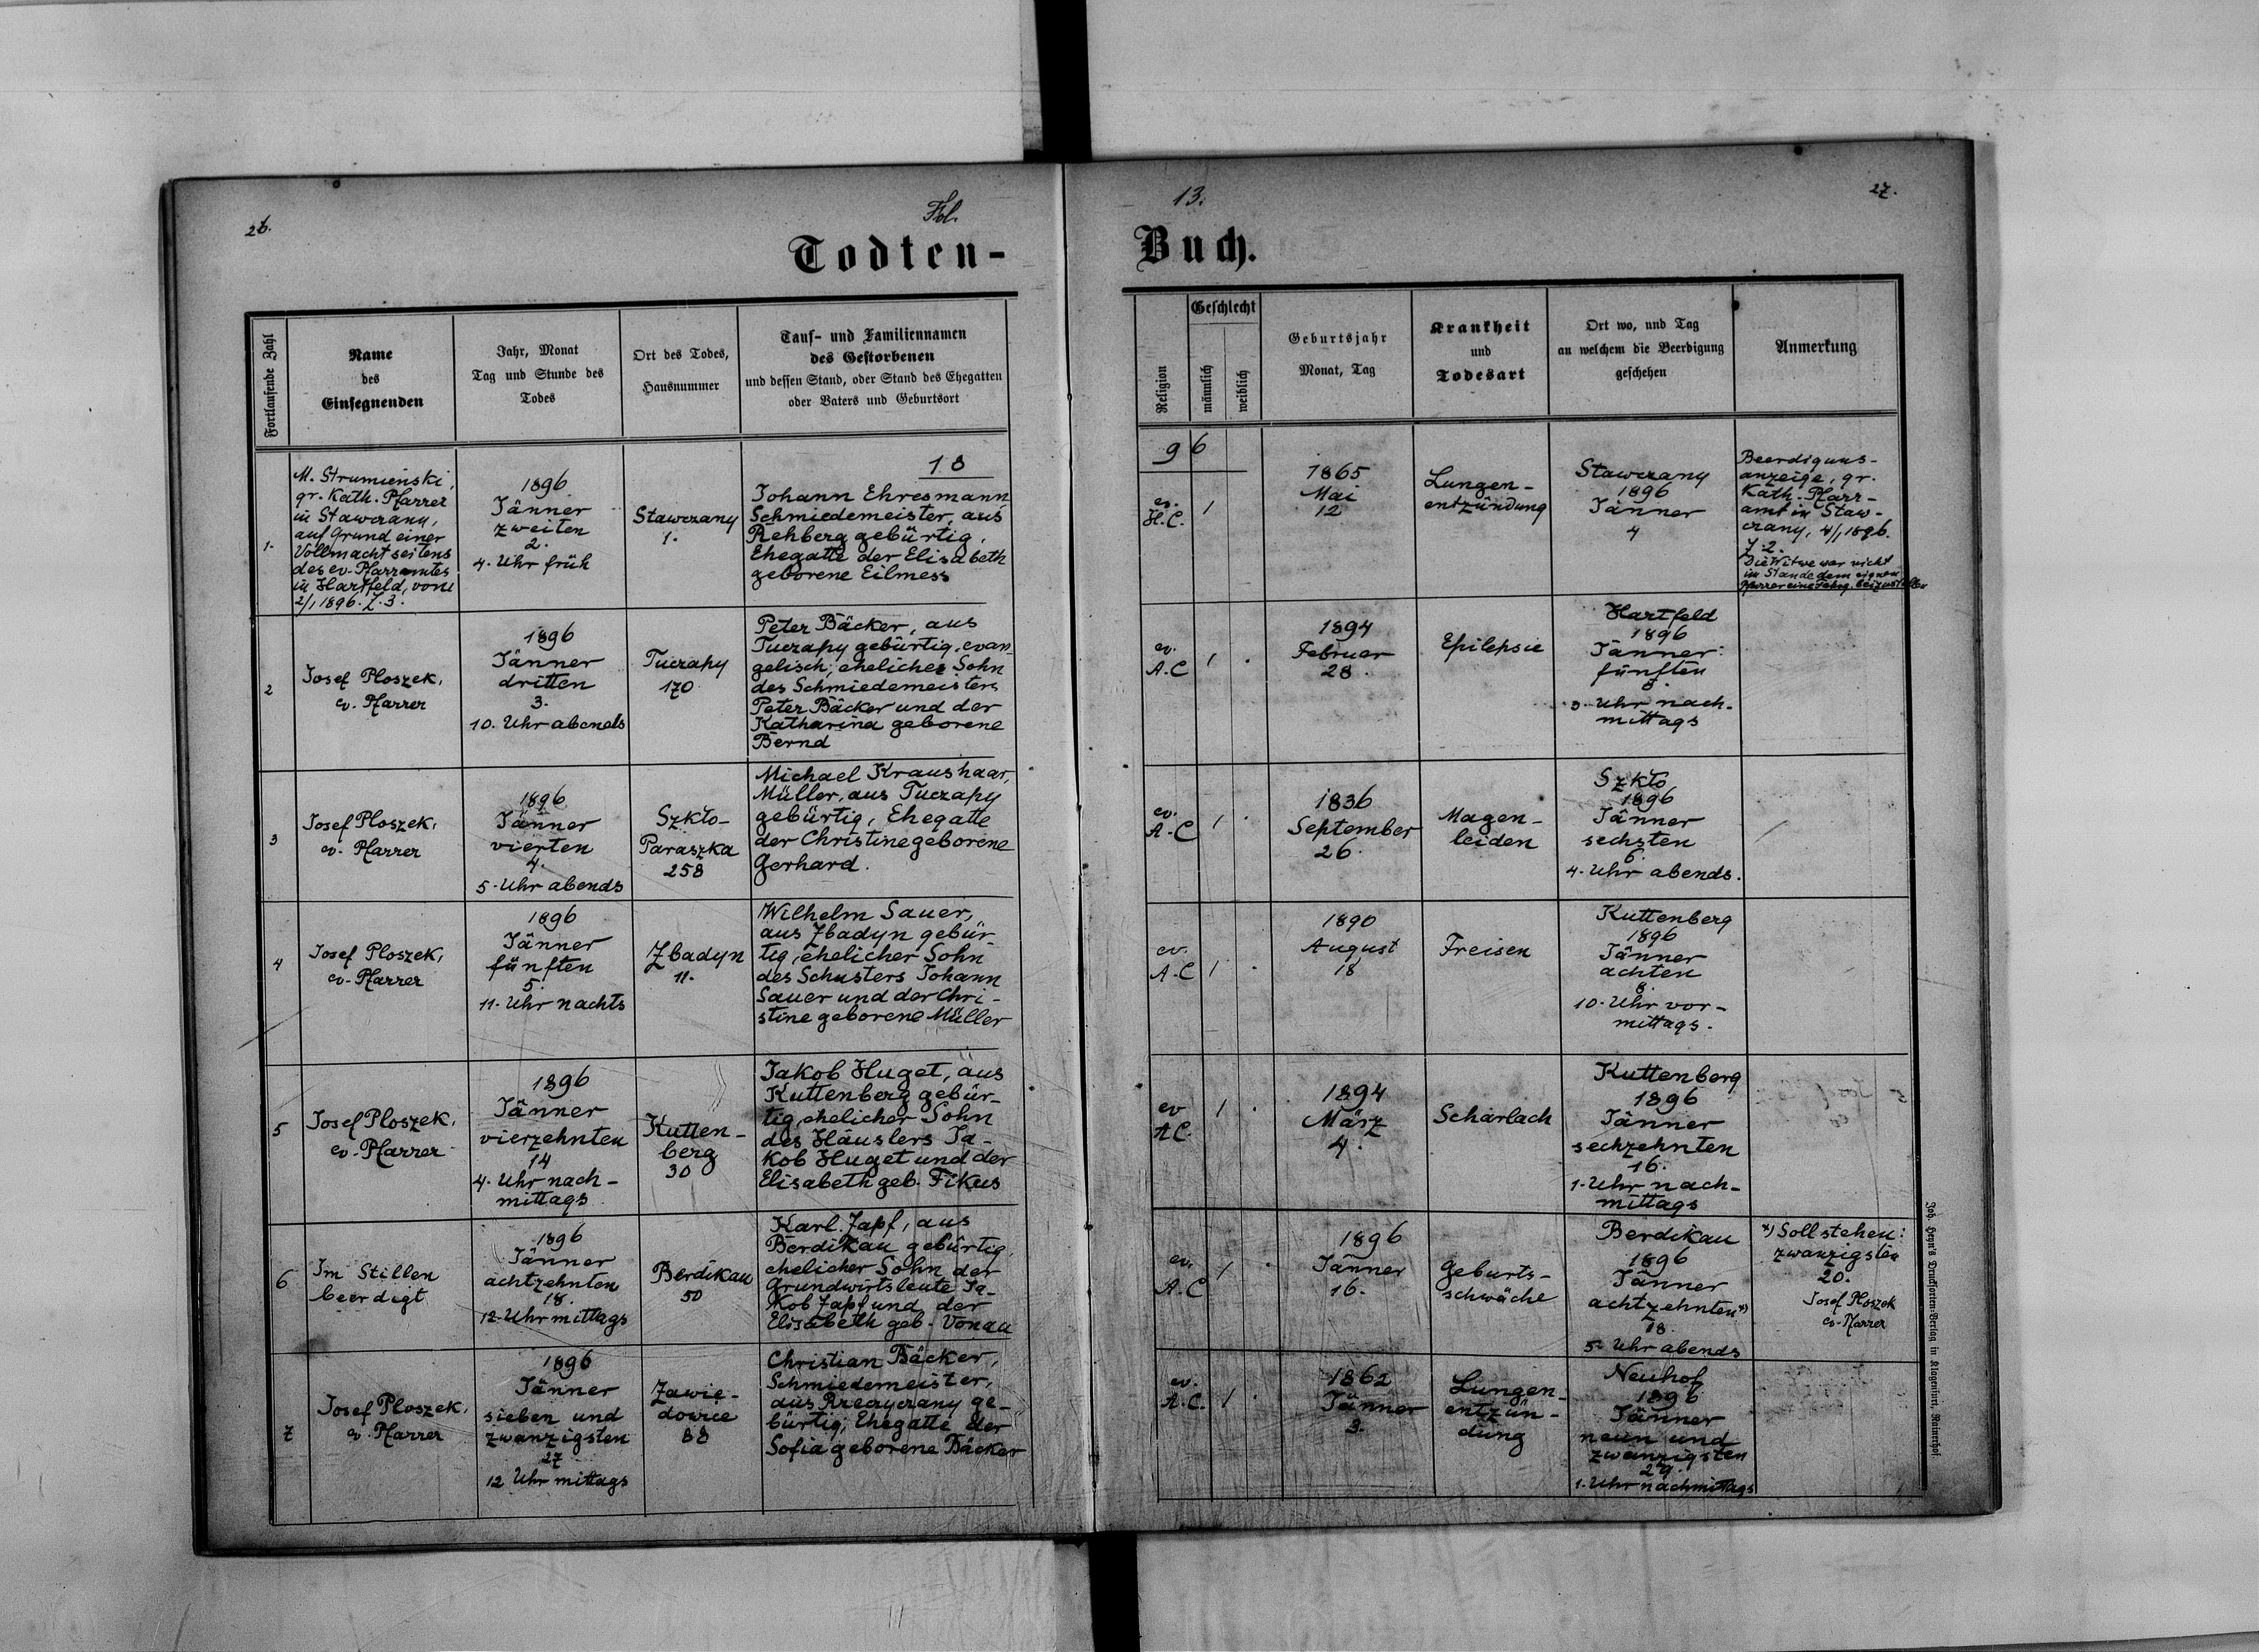 26.
Fol.
Todten-
Fortlaufende Zahl
Name
des
Einsegnenden
Jahr, Monat
Tag und Stunde des
Todes
Ort des Todes,
Hausnummer
Tauf- und Familiennamen
des Gestorbenen
und dessen Stand, oder Stand des Ehegatten
oder Vaters und Geburtsort
18
1.
M. Strumieński,
gr. Kath. Pfarrer
in Stawczany,
auf Grund einer
Vollmacht seitens
des ev. Pfarramtes
in Hartfeld, vom
2/1 1896. Z. 3.
1896
Jänner
zweiten
2.
4. Uhr früh
Stawczany
1.
Johann Ehresmann
Schmiedemeister, aus
Rehberg gebürtig,
Ehegatte der Elisabeth
geborene Eilmess
2
Josef Ploszek,
ev. Pfarrer
1896
Jänner
dritten
3.
10. Uhr abends
Tuczapy
170
Peter Bäcker, aus
Tuczapy gebürtig, evan
gelisch, ehelicher Sohn
des Schmiedemeisters
Peter Bäcker und der
Katharina geborene
Bernd
3
Josef Ploszek,
ev. Pfarrer
1896
Jänner
vierten
4.
5. Uhr abends
Szkło-
Paraszka
258
Michael Kraushaar,
Müller, aus Tuczapy
gebürtig, Ehegatte
der Christine geborene
Gerhard.
4
Josef Ploszek,
ev. Pfarrer
1896
Jänner
fünften
5.
11. Uhr nachts
Zbadyn
11.
Wilhelm Sauer,
aus Zbadyn gebür-
tig, ehelicher Sohn
des Schusters Johann
Sauer und der Chri-
stine geborene Müller
5
Josef Ploszek,
ev. Pfarrer
1896
Jänner
vierzehnten
14
4. Uhr nach-
mittags
Kutten-
berg
30
Jakob Huget, aus
Kuttenberg gebür-
tig, ehelicher Sohn
des Häuslers Ja-
kob Huget und der
Elisabeth geb. Fikus
6
Im Stillen
beerdigt
1896
Jänner
achtzehnten
18.
12. Uhr mittags
Berdikau
50
Karl Zapf, aus
Berdikau gebürtig,
ehelicher Sohn der
Grundwirtsleute Ja-
kob Zapf und der
Elisabeth geb. Vonau
7
Josef Ploszek,
ev. Pfarrer
1896
Jänner
sieben und
zwanzigsten
27
12 Uhr mittags
Zawie-
dowice
88
Christian Bäcker,
Schmiedemeister,
aus Rzeczyczany ge-
bürtig, Ehegatte der
Sofia geborene Bäcker
13.
27.
Buch.
Religion
Geschlecht
männlich
weiblich
Geburtsjahr
Monat, Tag
Krankheit
und
Todesart
Ort wo, und Tag
an welchem die Beerdigung
geschehen
Anmerkung
96
ev.
H.C.
1
1865
Mai
12
Lungen-
entzündung
Stawczany
1896
Jänner
4
Beerdigungs-
anzeige, gr.
Kath. Pfarr-
amt in Staw-
czany, 4/1, 1896.
Z. 2.
Die Witwe war nicht
im Stande dem eignen
Pfarrer eine
ev.
A.C
1
1894
Februar
28.
Epilepsie
Hartfeld
1896
Jänner
fünften
5.
3. Uhr nach-
mittags
ev.
A.C
1
1836
September
26.
Magen-
leiden
Szkło
1896
Jänner
sechsten
6.
4. Uhr abends.
ev.
A.C
1
1890
August
18
Freisen
Kuttenberg
1896
Jänner
achten
8.
10. Uhr vor-
mittags.
ev
A.C.
1
1894
März
4.
Scharlach
Kuttenberg
1896
Jänner
sechzehnten
16.
1. Uhr nach-
mittags
ev.
A.C
1
1896
Jänner
16.
Geburts-
schwäche
Berdikau
1896
Jänner
achtzehnten*)
18.
5. Uhr abends
*) Soll stehen:
zwanzigsten
20.
Josef Ploszek
ev. Pfarrer
ev.
A.C.
1
1862
Jänner
3.
Lungen-
entzün-
dung
Neuhof
1896
Jänner
neun und
zwanzigsten
29.
1. Uhr nachmittags
Joh. Heyn's Drucksorten-Verlag in Klagenfurt, Rainerhof.